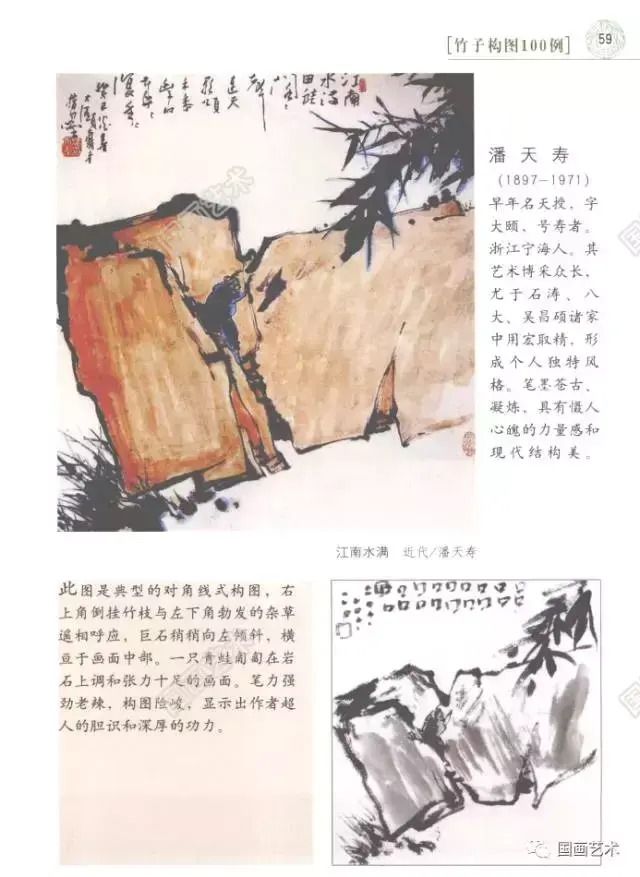 [竹子构图100例]
59
江南
水
声
连天
雅颂
潘天寿
(1897—1971)
早年名天授，字
大颐、号寿者。
浙江宁海人。其
艺术博采众长，
尤于石涛、八
大、吴昌硕诸家
中用宏取精，形
成个人独特风
格。笔墨苍古、
凝炼、具有慑人
心魄的力量感和
现代结构美。
江南水满 近代/潘天寿
此图是典型的对角线式构图，右
上角倒挂竹枝与左下角勃发的杂草
遥相呼应，巨石稍稍向左倾斜，横
亘于画面中部。一只青蛙匍匐在岩
石上调和张力十足的画面。笔力强
劲老辣，构图险峻，显示出作者超
人的胆识和深厚的功力。
国画艺术
国画艺术